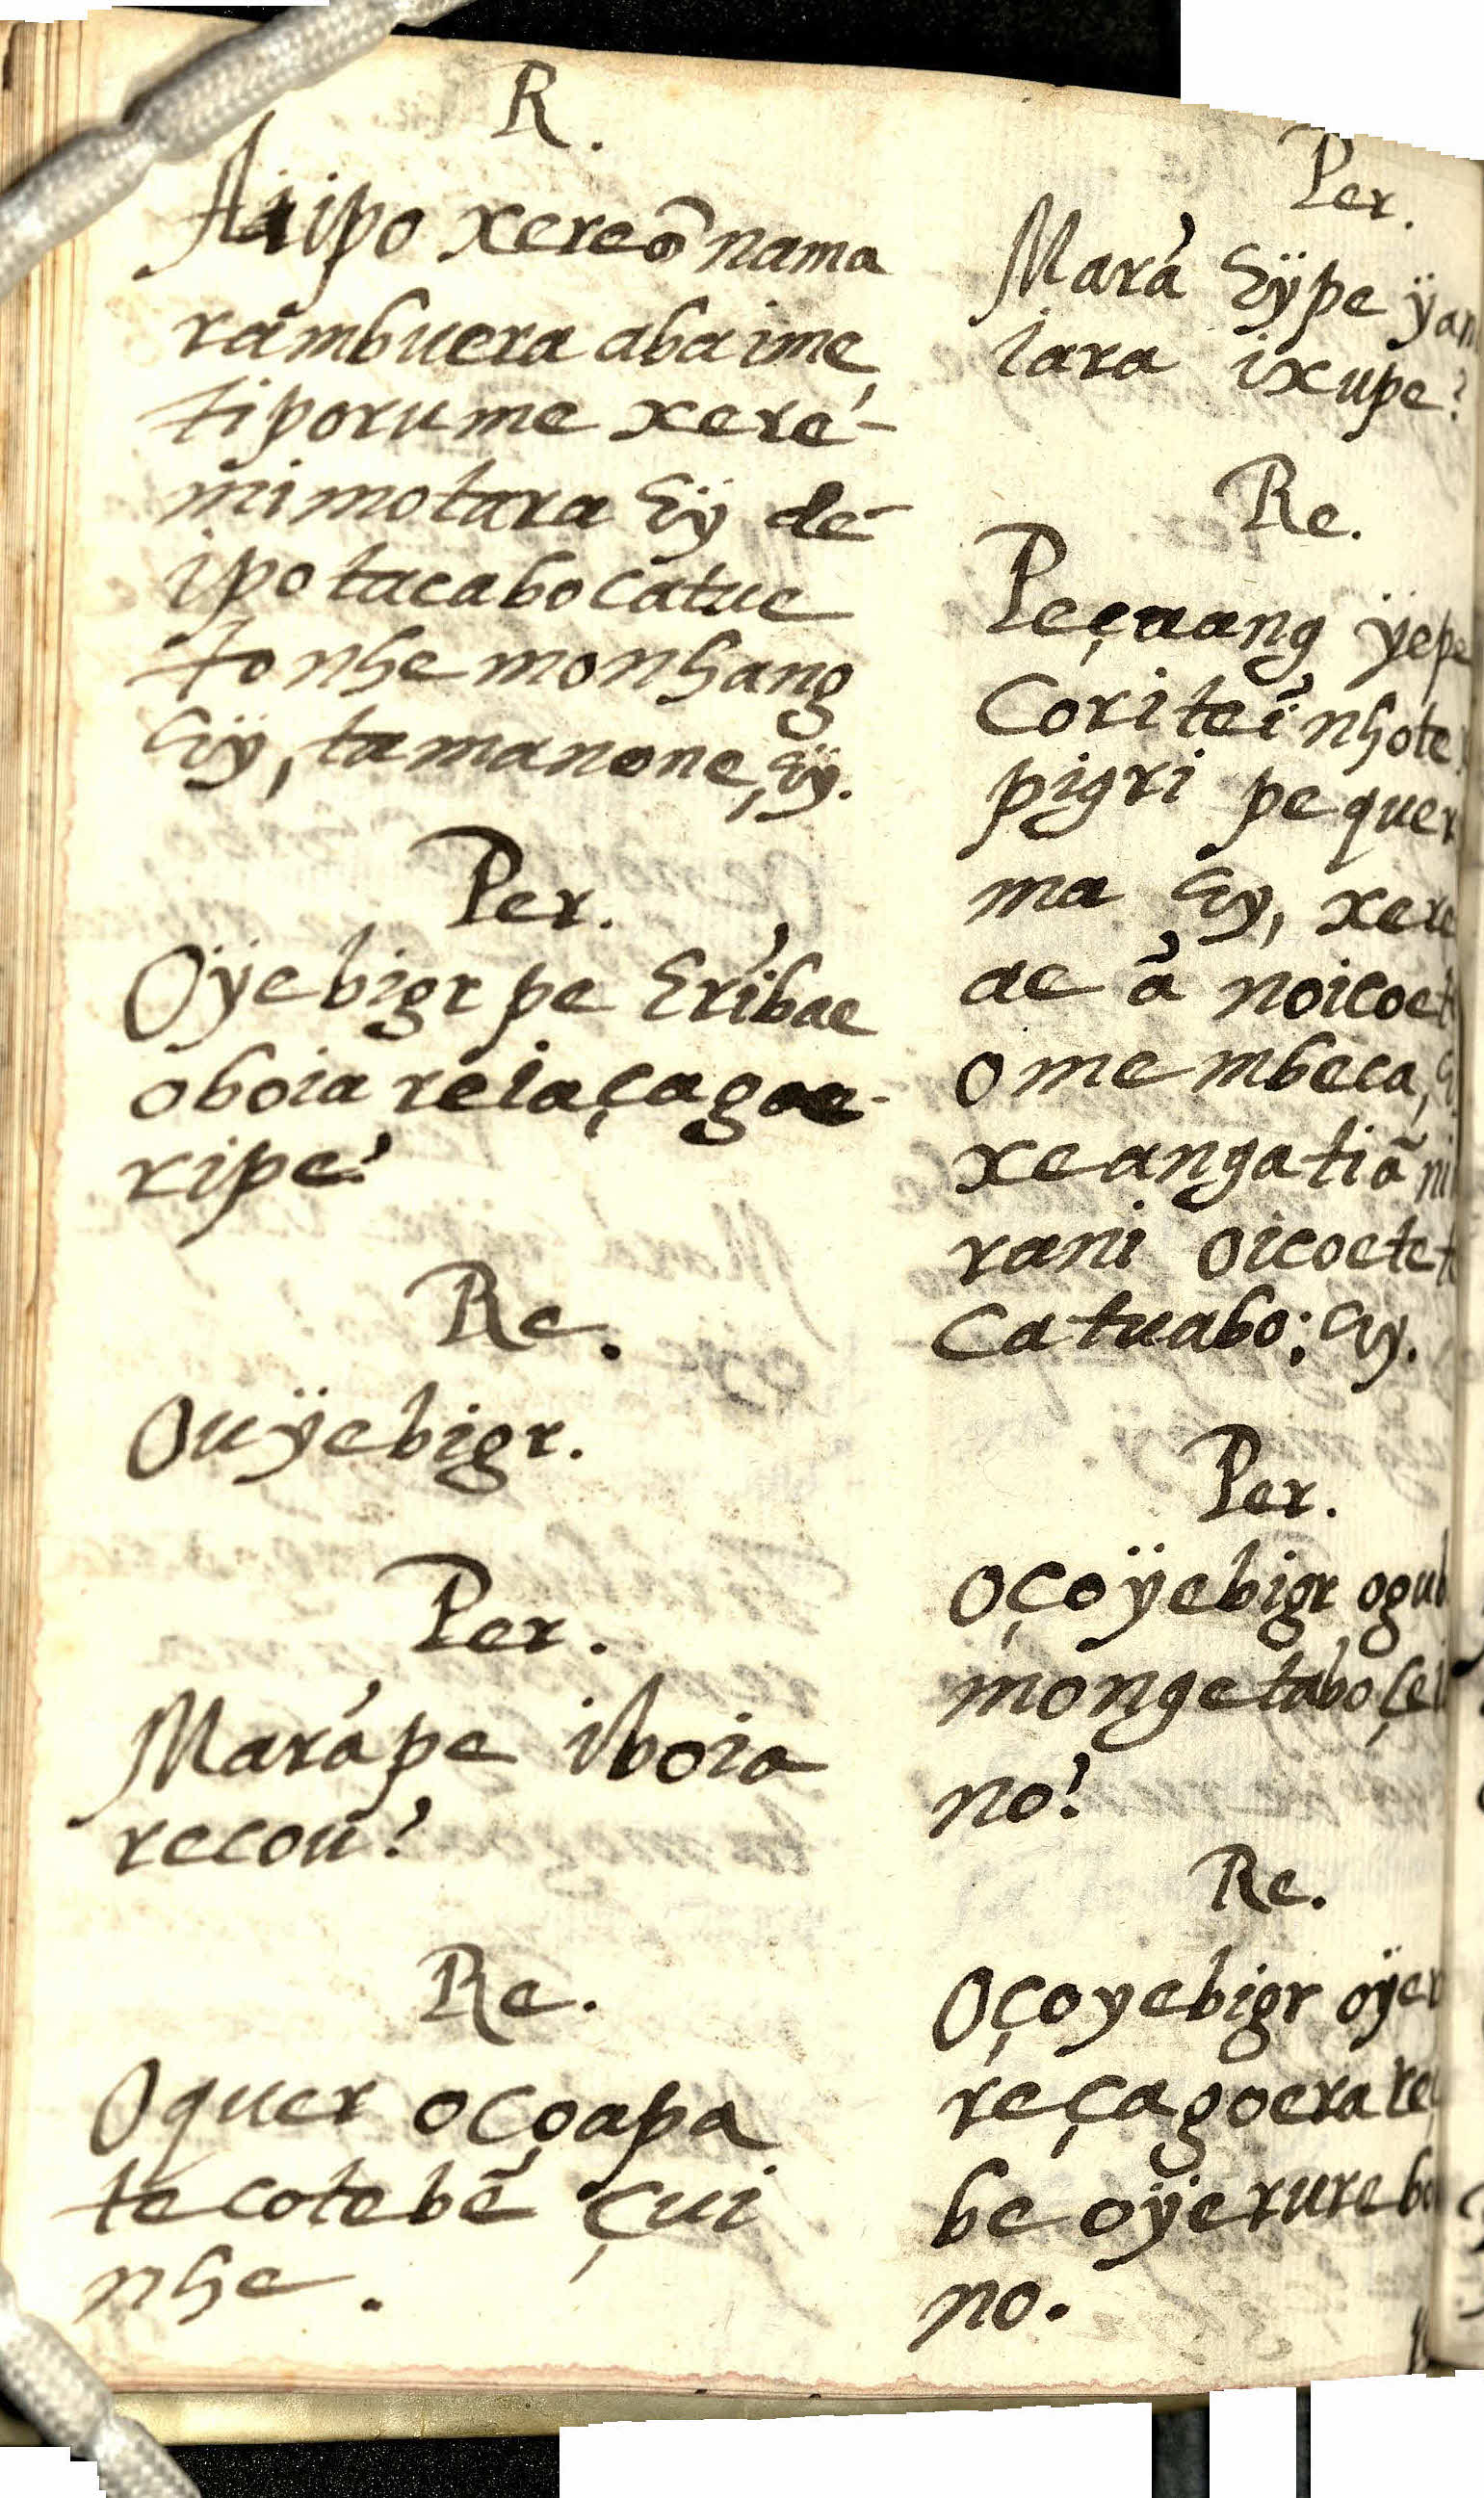 R.
Aiipo xereõnama
rambuera abaime,
tiporume xeré-
mimotara Eÿ de-
ipotacabocatue
tonhemonhang
Eÿ, tamanone, Eÿ.
Per.
Oÿebigr pe Eríbae
oboia reiaçagoe-
ripe?
Re.
Ouÿebigr.
Per.
Marápe iboia
recou?
Re.
Oquer oçoapa
tecotebẽ çui
nhe.
Per.
Mará Eÿpe
lara ixupe?
Re.
Peçaang
Coriteĩ nhote
pigri
ma Eÿ,
ae ã
omembeca,
xeangatiã
rani
Catuabo; Eÿ.
Per.
Oçoÿebigr
mongetabo
no?
Re.
Oçoyebigr
reçagoera
be
no.